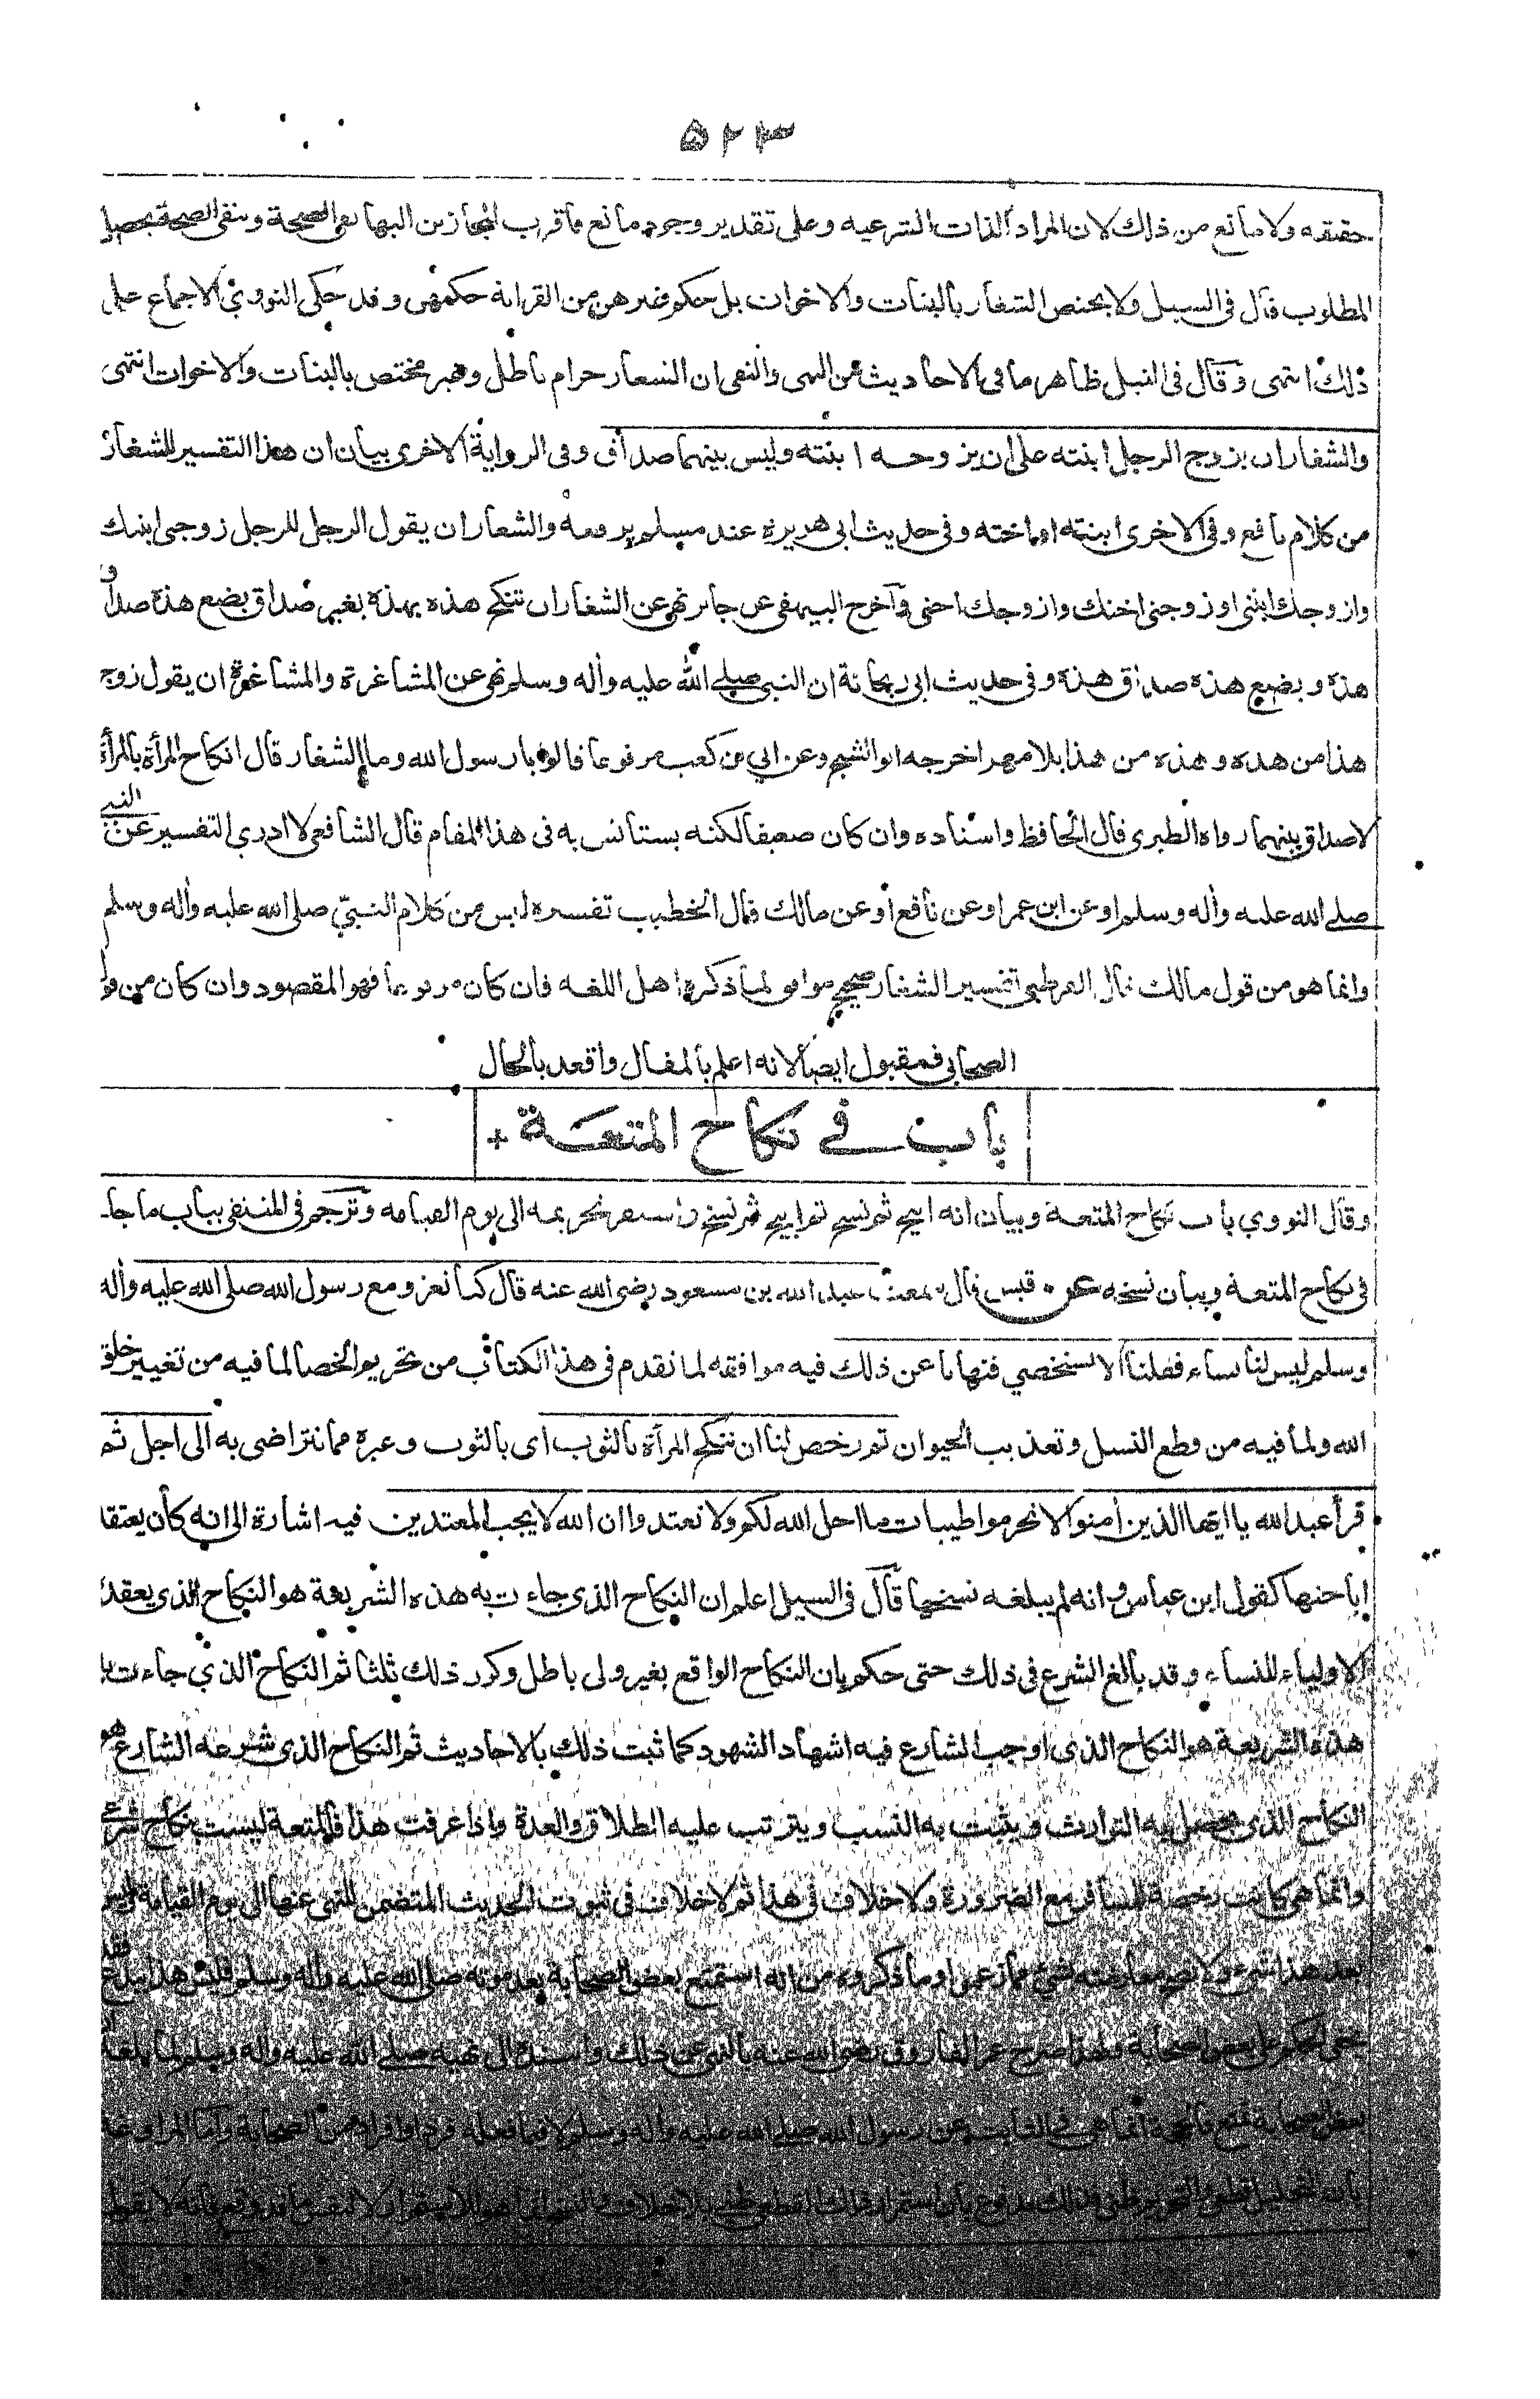 ۵۲۳
حقيقه ولا مانع من ذلك لان المراد الذات الشرعيه وعلى تقدير وجود مانع فاقرب المجازين اليها نفى الصحة ونفى الصحة يحصل
المطلوب قال فى السيل ولا يختص الشغار بالبنات والاخوات بل حكم غيرهن من القرابة حكمهن وقد حكى النووي الاجماع على
ذلك انتهى وقال فى النيل ظاهر ما فى الاحاديث من النهى والنفى ان الشغار حرام باطل وهو غير مختص بالبنات والاخوات انتهى
والشغار ان يزوج الرجل ابنته على ان يزوجه ابنته وليس بينهما صداق وفى الرواية الاخرى بيان ان هذا التفسير للشغار
من كلام نافع وفى الاخرى ابنته او اخته وفى حديث ابى هريرة عند مسلم يرفعه والشغار ان يقول الرجل للرجل زوجنى ابنتك
وازوجك ابنتى او زوجنى اختك وازوجك اختى وآخرج البيهقى عن جابر نهى عن الشغار ان تنكح هذه بهذه بغير صداق بضع هذه صداق
هذه وبضع هذه صداق هذه وفى حديث ابى ريحانة ان النبى صلى الله عليه وأله وسلم نهى عن المشاغرة والمشاغرة ان يقول زوج
هذا من هذه وهذه من هذا بلا مهر اخرجه ابو الشيخ وعن ابي بن كعب مرفوعا قالوا يا رسول الله وما الشغار قال انكاح المرأة بالمرأة
لا صداق بينهما رواه الطبرى قال الحافظ واسناده وان كان ضعيفا لكنه يستانس به فى هذا المقام قال الشافعى لا ادرى التفسير عن النبي
صلى الله عليه وأله وسلم او عن ابن عمر او عن نافع او عن مالك قال الخطيب تفسيره ليس من كلام النبيّ صلى الله عليه وأله وسلم
وانما هو من قول مالك قال القرطبى تفسير الشغار صحيح موافق لما ذكره اهل اللغه فان كان مرفوعا فهو المقصود وان كان من قول
الصحابى فمقبول ايضا لانه اعلم بالمقال واقعد بالحال
باب فى نكاح المتعة +
وقال النووي باب نكاح المتعة وبيان انه ابيح ثم نسخ ثم ابيح ثم نسخ واستقر تحريمه الى يوم القيامه وترجم فى المنتقى بباب ما جاء
فى نكاح المتعة وبيان نسخه عن قيس قال سمعت عبد الله بن مسعود رضى الله عنه قال كنا نغزو مع رسول الله صلى الله عليه وأله
وسلم ليس لنا نساء فقلنا ألا نستخصي فنهانا عن ذلك فيه موافقه لما تقدم فى هذا الكتاب من تحريم الخصا لما فيه من تغيير خلق
الله ولما فيه من قطع النسل وتعذيب الحيوان ثم رخص لنا ان ننكح المرأة بالثوب اى بالثوب وغيره مما نتراضى به الى اجل ثم
قرأ عبد الله يا ايها الذين أمنوا لا تحرموا طيبات ما احل الله لكم ولا تعتدوا ان الله لا يحب المعتدين فيه اشارة الى انه كان يعتقد
اباحتها كقول ابن عباس وانه لم يبلغه نسخها قال فى السيل اعلم ان النكاح الذى جاءت به هذه الشريعة هو النكاح الذى يعقده
الاولياء للنساء وقد بالغ الشرع فى ذلك حتى حكم بان النكاح الواقع بغير ولى باطل وكرر ذلك ثلثا ثم النكاح الذي جاءت به
هذه الشريعة هو النكاح الذى اوجب الشارع فيه اشهاد الشهود كما ثبت ذلك بالاحاديث ثم النكاح الذى شرعه الشارع هو
النكاح الذى يحصل به التوارث ويثبت به النسب ويترتب عليه الطلاق والعدة واذا عرفت هذا فالمتعة ليست بنكاح شرعى
وانما هى كانت رخصة للمسافر مع الضرورة ولا خلاف فى هذا ثم لا خلاف فى ثبوت الحديث المتضمن للنهى عنها الى يوم القيامة وليس
بعد هذا شىء ولا تصح معارضته بشىء مما زعموا وما ذكروه من انه استمتع بعض الصحابة بعد موته صلى الله عليه وأله وسلم فليس هذا ببدع فقد
يخفى الحكم على بعض الصحابة ولهذا صرح عمر الفاروق رضى الله عنه بالنهى عن ذلك واستدل الى نهيه صلى الله عليه وأله وسلم لما بلغه ان
بعض الصحابة تمتع فالحجة انما هى فى الثابت عن رسول الله صلى الله عليه وأله وسلم لا فيما فعله فرد او افراد من الصحابة واما المراوغة
بان التحليل قطعى والتحريم ظنى فذلك مدفوع بان استمرار ذلك القطعى ظنى بلا خلاف والنسخ انما هو للاستمرار لا لنفس ما قد وقع فانه لا يقول